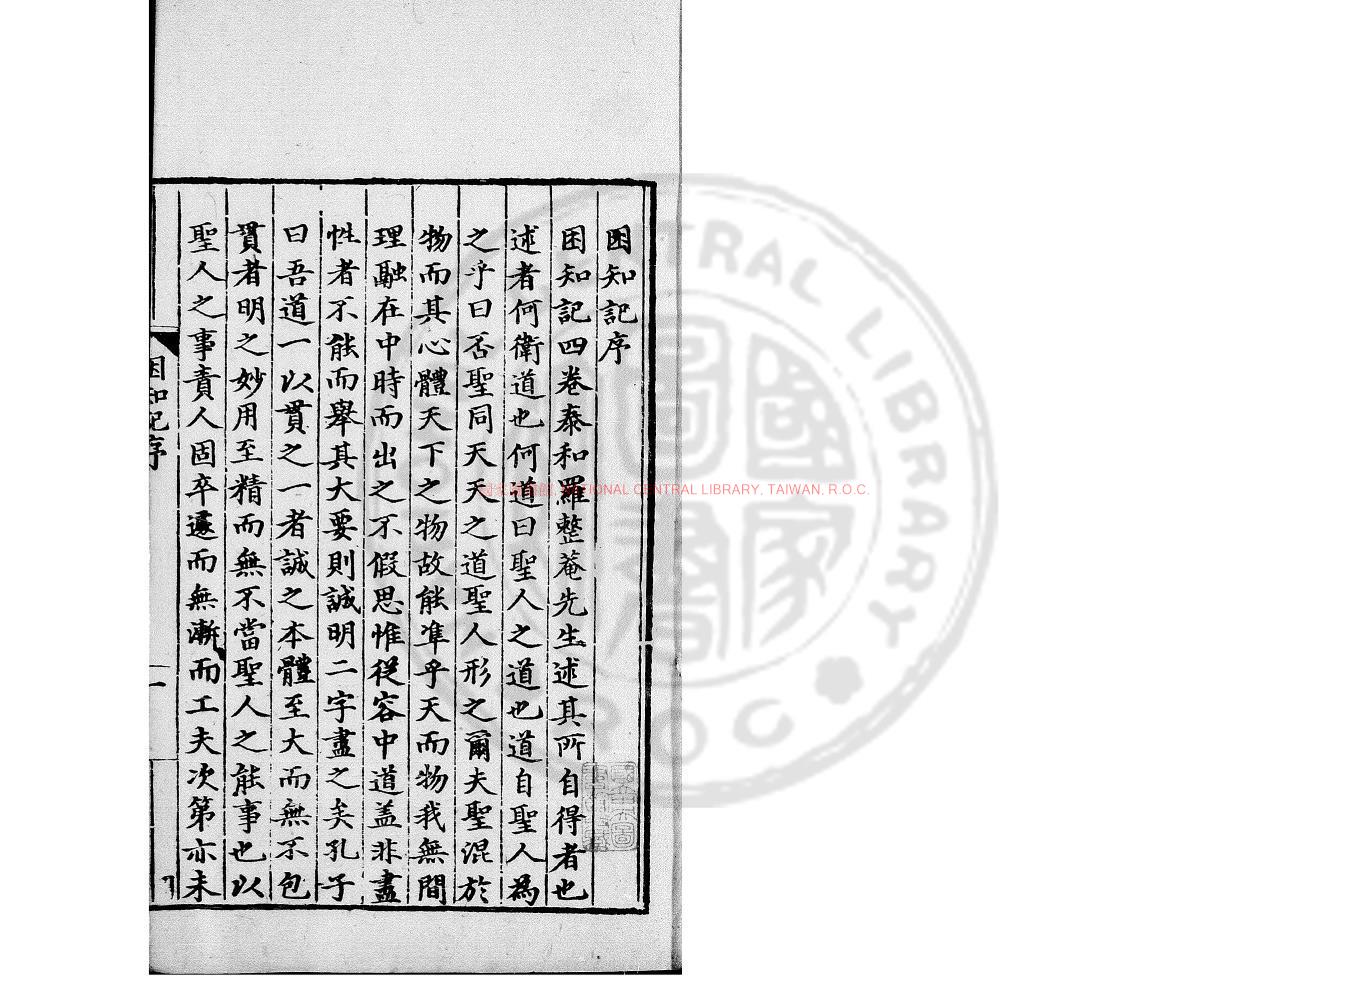 困知記序
困知記四卷泰和羅整菴先生述其所自得者也
述者何衛道也何道曰聖人之道也道自聖人為
之乎曰否聖同天天之道聖人形之爾夫聖混於
物而其心體天下之物故能準乎天而物我無間
理融在中時而出之不假思惟從容中道盖非盡
性者不能而舉其大要則誠明二字盡之矣孔子
曰吾道一以貫之一者誠之本體至大而無不包
貫者明之妙用至精而無不當聖人之能事也以
聖人之事責人固卒遽而無漸而工夫次第亦未
困知記序
一
國家圖書館, NATIONAL CENTRAL LIBRARY, TAIWAN, R.O.C.
CENTRAL LIBRARY
R.O.C.
國家圖書